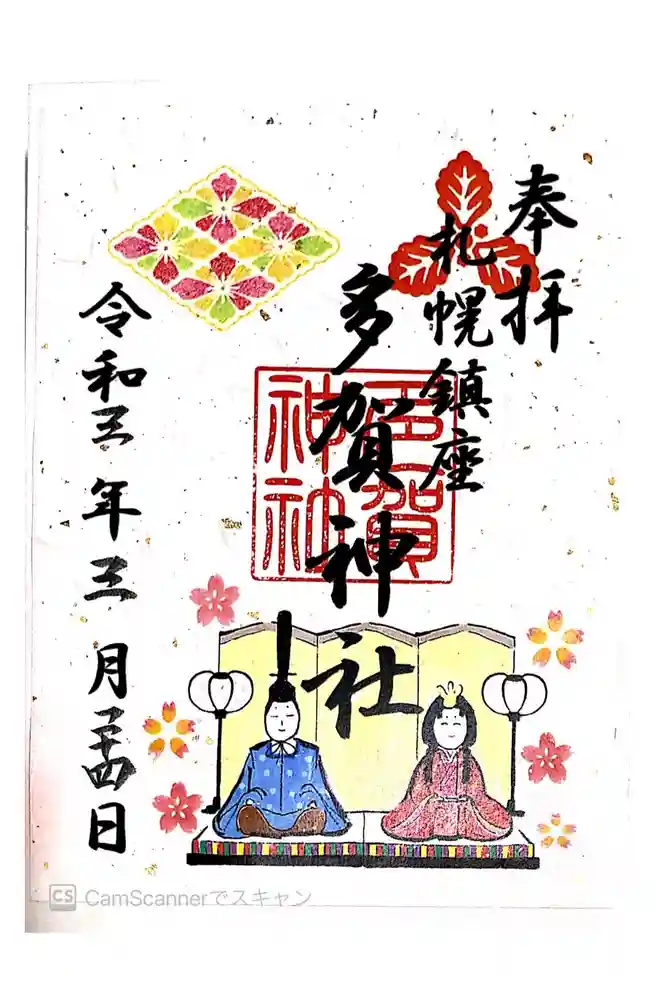 奉拝
札幌鎮座
多賀神社
多賀神社
令和三年三月二十四日
CS CamScannerでスキャン